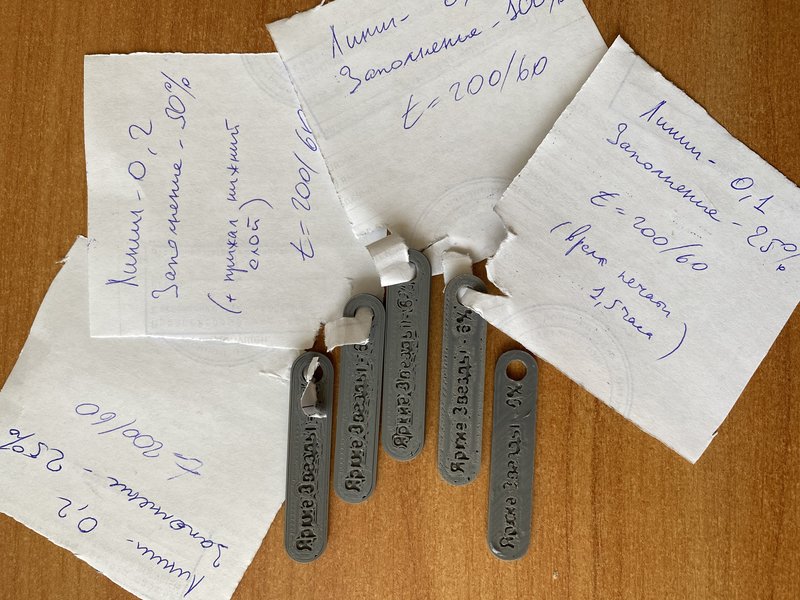 Линии - 0,2
Заполнение - 30%
(+ прижал нижний
слой)
t = 200/60
Линии -
Заполнение - 100%
t = 200/60
Линии - 0,1
Заполнение - 25%
t = 200/60
(время печати
1,5 часа)
Линии - 0,2
Заполнение - 25%
t = 200/60
Звезды
Яркие Звезды
Яркие Звезды
Яркие Звезды
Яркие Звезды